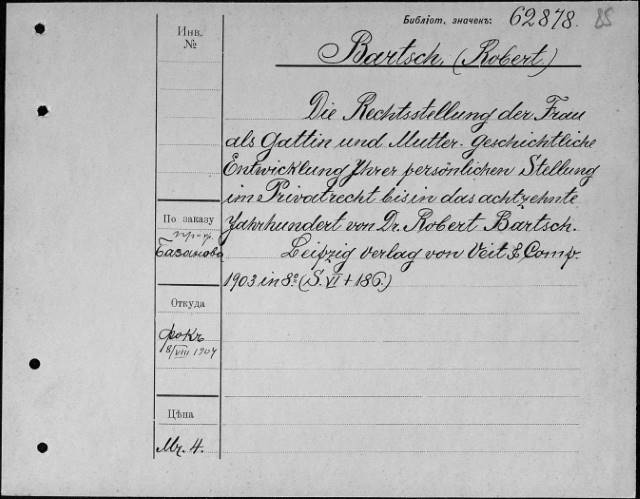 Библіот. значекъ: 62878.
Инв.
№
Bartsch, (Robert.)
Die Rechtsstellung der Frau
als Gattin und Mutter. Geschichtliche
Entwicklung Ihrer persönlichen Stellung
im Privatrecht bis in das achtzehnte
Jahrhundert von Dr. Robert Bartsch.
Leipzig Verlag von Veit & Comp.
1903 in 8º (S. VI + 186.)
По заказу
пр-р.
Базанова
Откуда
фокъ
8/VIII 1904
Цѣна
Mr. 4.